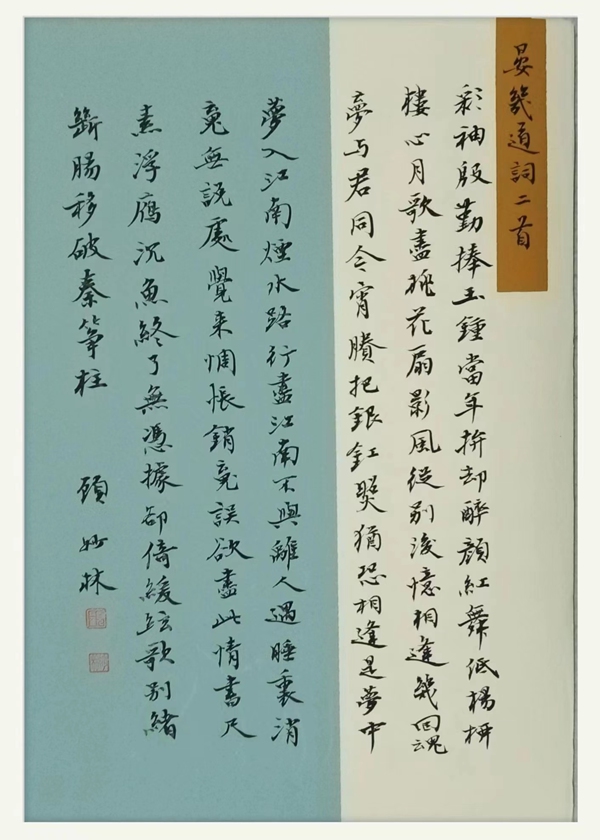 晏幾道詞二首
彩袖殷勤捧玉鍾當年拚却醉顏紅舞低楊柳
樓心月歌盡桃花扇影風從别後憶相逢幾回魂
夢与君同今宵賸把銀釭照猶恐相逢是夢中
夢入江南煙水路行盡江南不與離人遇睡裏消
魂無說處覺來惆悵銷魂誤欲盡此情書尺
素浮鴈沉魚終了無憑據卻倚緩絃歌别緒
斷腸移破秦筝柱
顾 妙林